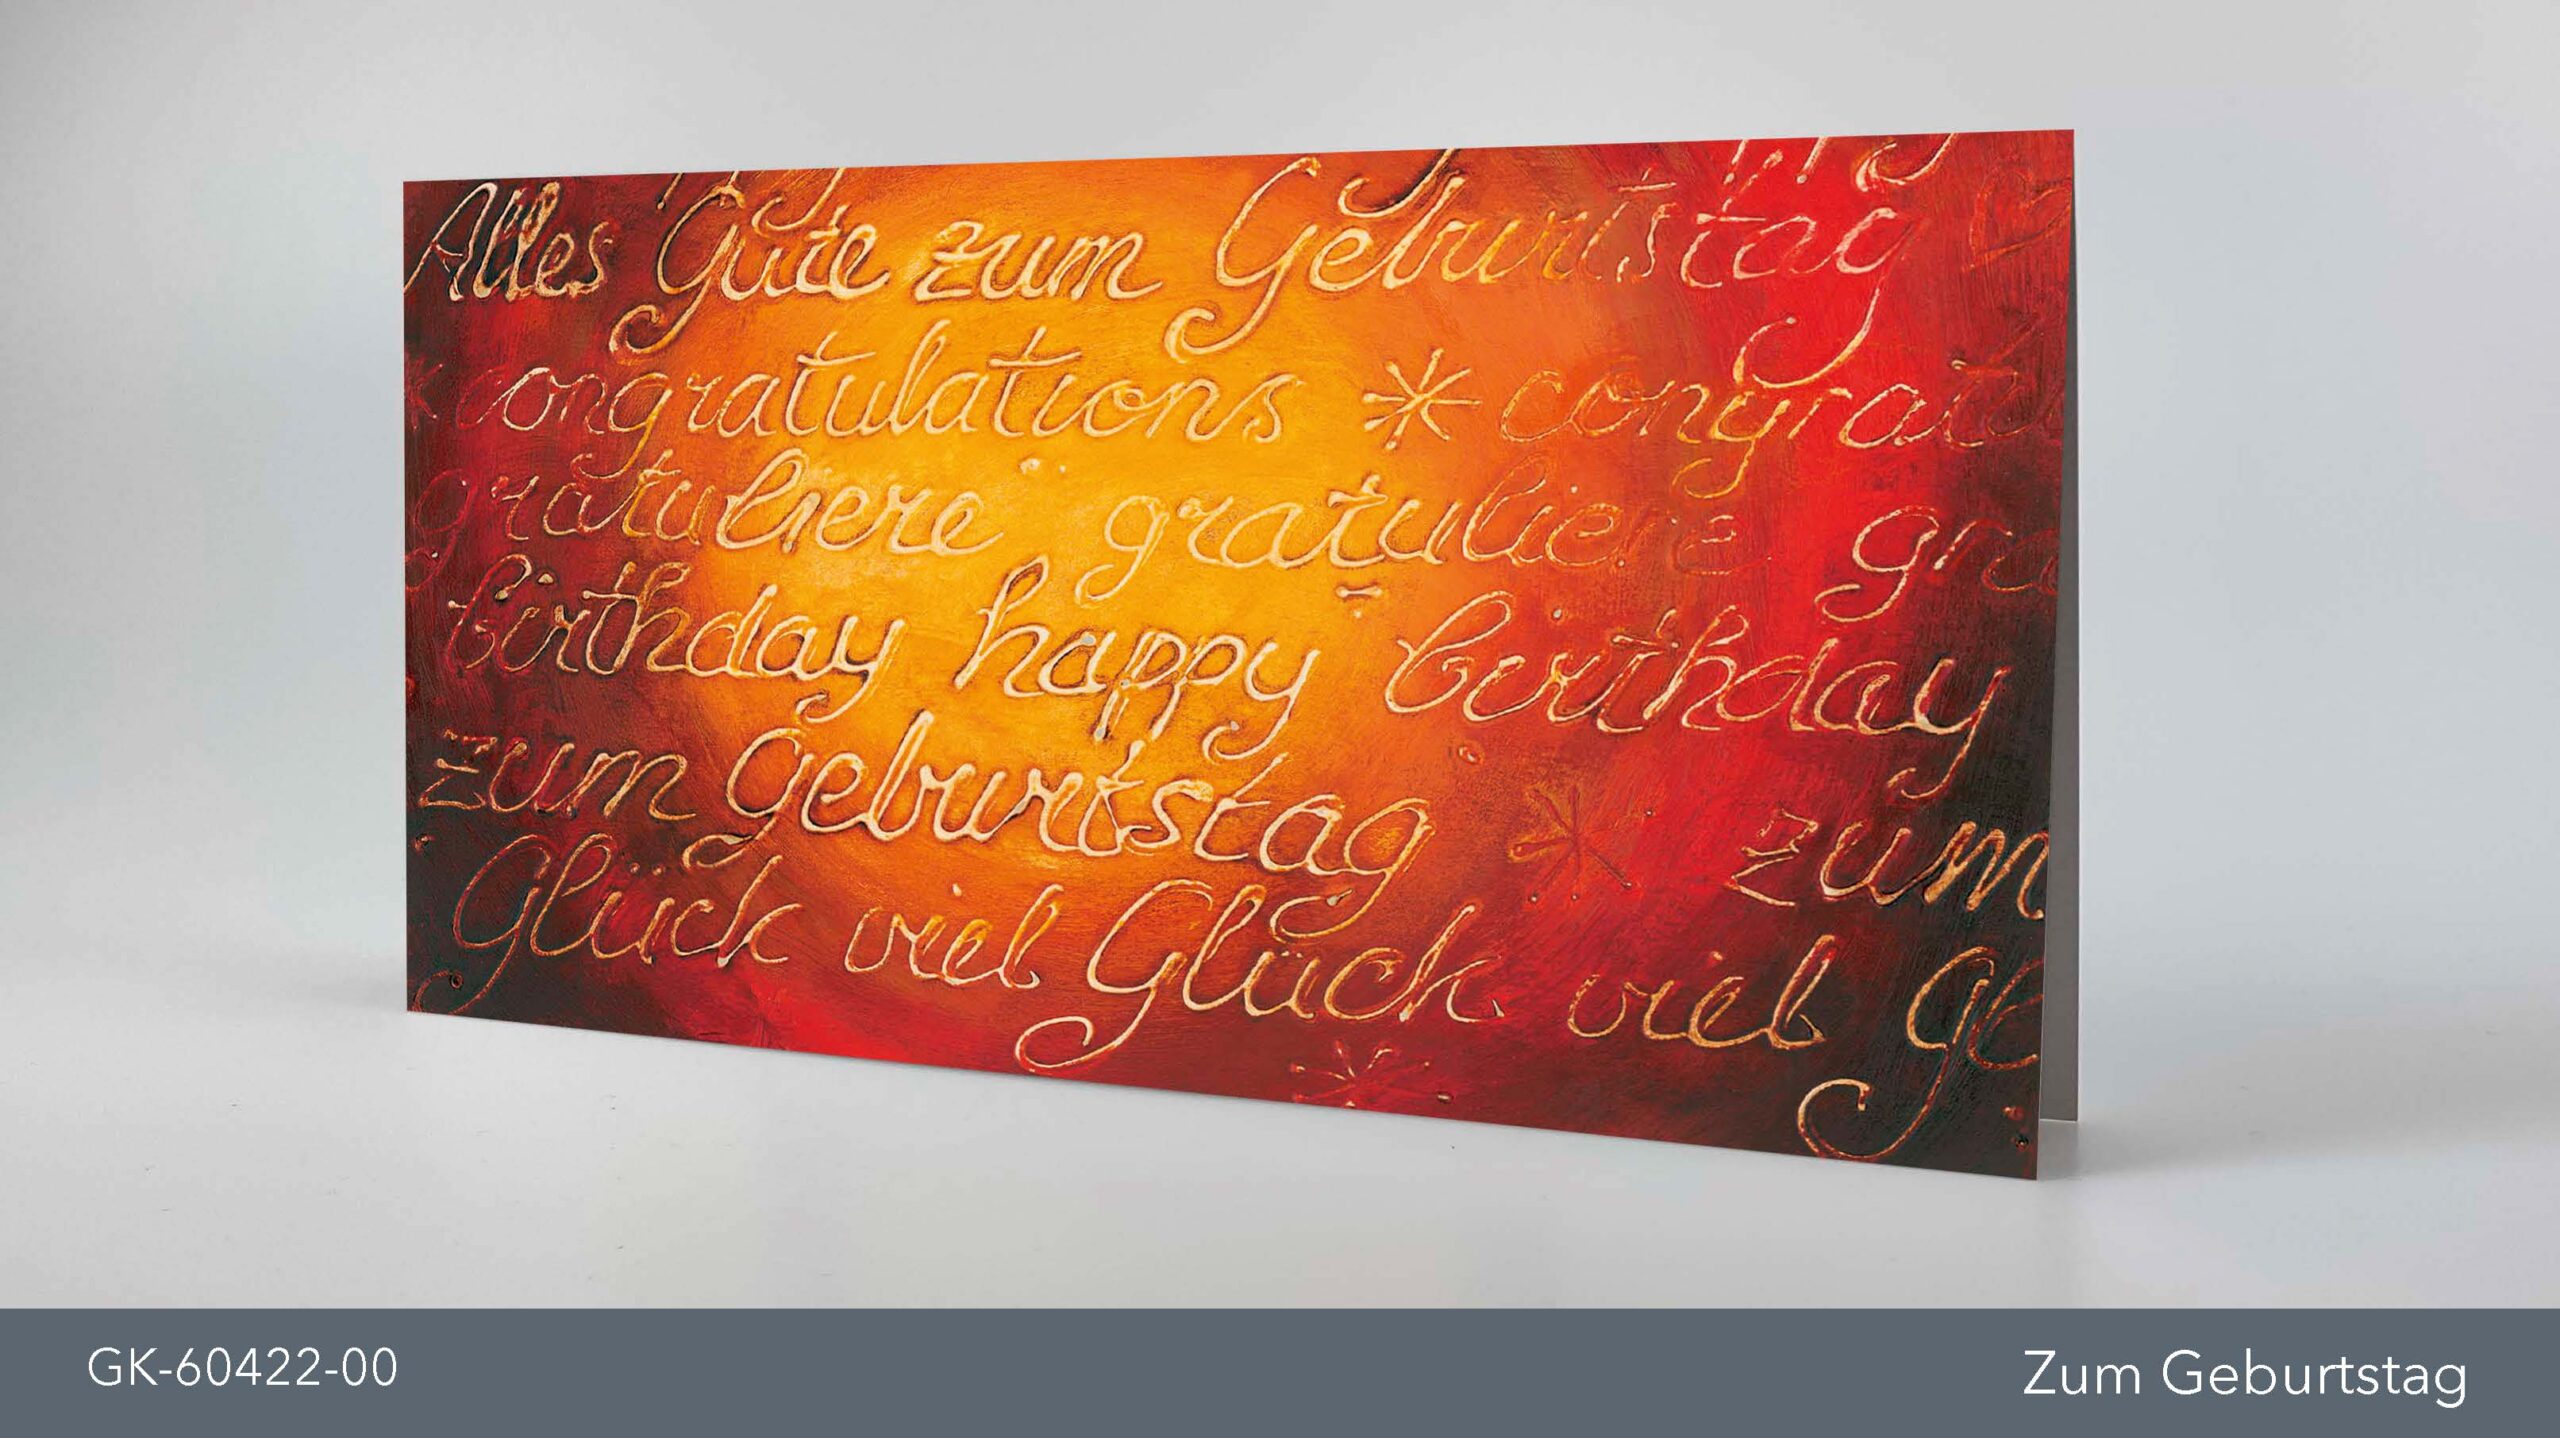 Alles Gute zum Geburtstag
congratulations * congratu
gratuliere gratuliere gra
birthday happy birthday
zum Geburtstag * zum
Glück viel Glück viel Gl
GK-60422-00
Zum Geburtstag